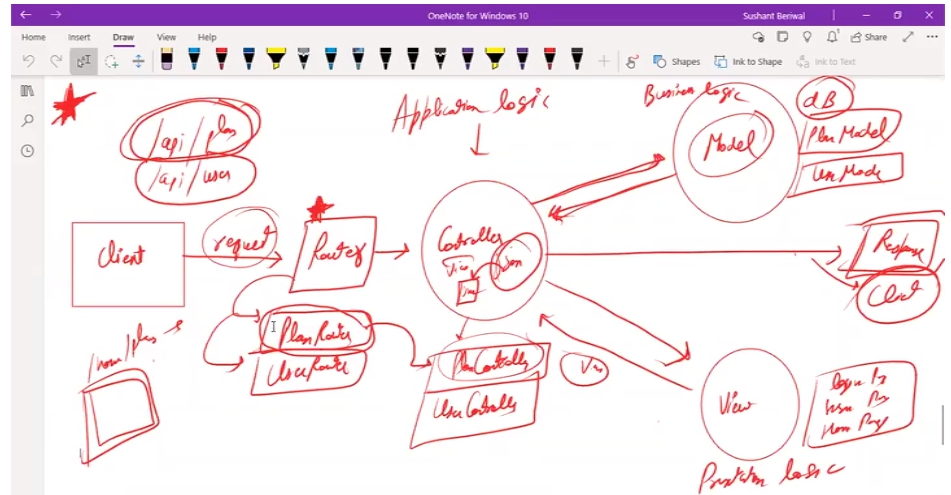 OneNote for Windows 10
Sushant Beriwal
Home Insert Draw View Help
Share
Shapes
Ink to Shape
Ink to Text
Application logic
Business logic
dB
Model
Plan Model
/api/plan
/api/user
Client
request
Router
Controller
View
Json
Response
Client
Plan Router
User Router
/home/plans
Plan Controller
User Controller
View
View
Login Pg
Home Page